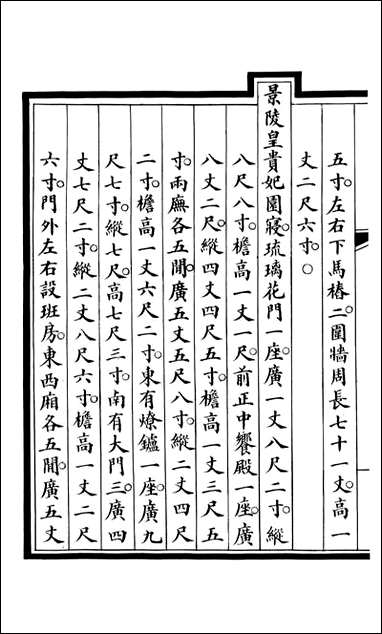 五寸。左右下馬樁。二圍牆周長七十一丈。高一
丈二尺六寸。○
景陵皇貴妃園寢。琉璃花門一座。廣一丈八尺二寸。縱
八尺八寸。檐高一丈一尺。前正中饗殿一座。廣
八丈二尺。縱四丈四尺五寸。檐高一丈三尺五
寸。兩廡各五間。廣五丈五尺八寸。縱二丈四尺
二寸。檐高一丈六尺二寸。東有燎鑪一座。廣九
尺七寸。縱七尺。高七尺三寸。南有大門三。廣四
丈七尺二寸。縱二丈八尺六寸。檐高一丈二尺
六寸。門外左右設班房。東西廂各五間。廣五丈